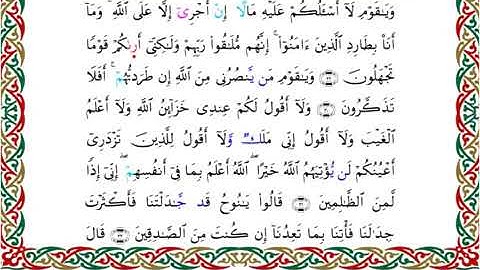 وَيَٰقَوۡمِ لَآ أَسۡـَٔلُكُمۡ عَلَيۡهِ مَالًاۖ إِنۡ أَجۡرِيَ إِلَّا عَلَى ٱللَّهِۚ وَمَآ
أَنَا۠ بِطَارِدِ ٱلَّذِينَ ءَامَنُوٓاْۚ إِنَّهُم مُّلَٰقُواْ رَبِّهِمۡ وَلَٰكِنِّيٓ أَرَىٰكُمۡ قَوۡمٗا
تَجۡهَلُونَ ٢٩ وَيَٰقَوۡمِ مَن يَنصُرُنِي مِنَ ٱللَّهِ إِن طَرَدتُّهُمۡۚ أَفَلَا
تَذَكَّرُونَ ٣٠ وَلَآ أَقُولُ لَكُمۡ عِندِي خَزَآئِنُ ٱللَّهِ وَلَآ أَعۡلَمُ
ٱلۡغَيۡبَ وَلَآ أَقُولُ إِنِّي مَلَكٞ وَلَآ أَقُولُ لِلَّذِينَ تَزۡدَرِيٓ
أَعۡيُنُكُمۡ لَن يُؤۡتِيَهُمُ ٱللَّهُ خَيۡرًاۖ ٱللَّهُ أَعۡلَمُ بِمَا فِيٓ أَنفُسِهِمۡ إِنِّيٓ إِذٗا
لَّمِنَ ٱلظَّٰلِمِينَ ٣١ قَالُواْ يَٰنُوحُ قَدۡ جَٰدَلۡتَنَا فَأَكۡثَرۡتَ
جِدَٰلَنَا فَأۡتِنَا بِمَا تَعِدُنَآ إِن كُنتَ مِنَ ٱلصَّٰدِقِينَ ٣٢ قَالَ